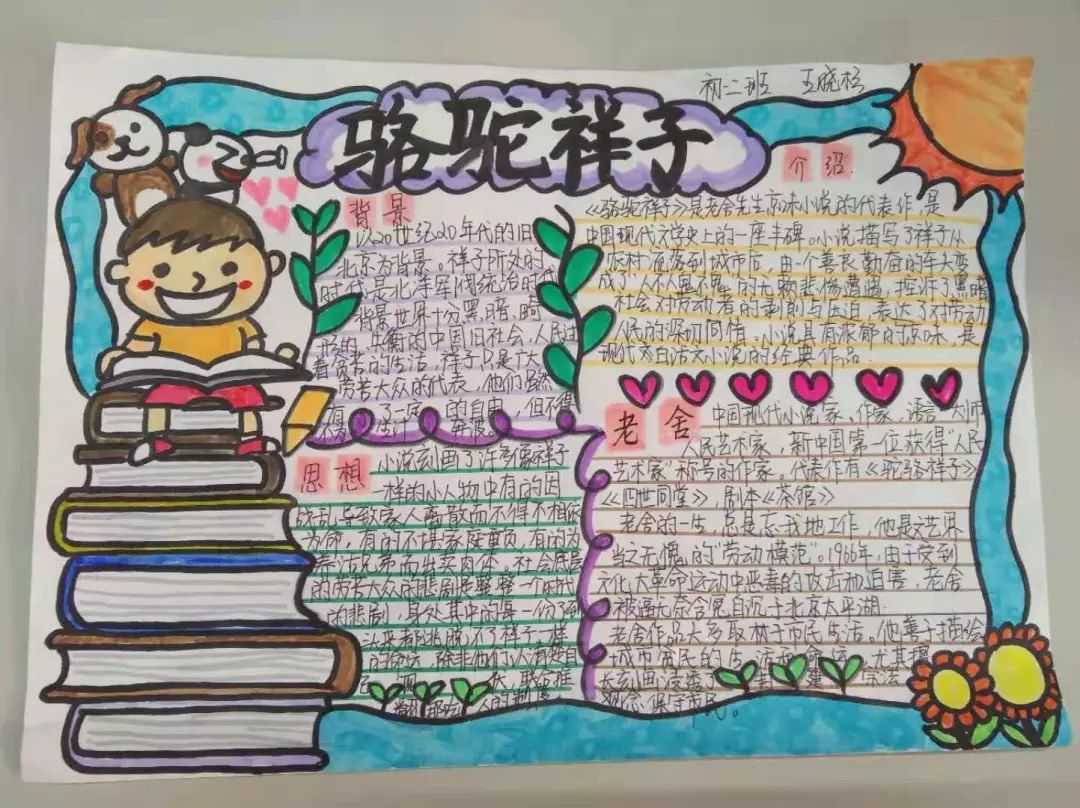 初二班 王晓杉
骆驼祥子
背景
以20世纪20年代的旧
北京为背景。祥子所处的
时代是北洋军阀统治时
背景世界十分黑暗、畸
形的、失衡的中国旧社会,人民过
着贫苦的生活,祥子只是广大
劳苦大众的代表。他们虽然
有了一定的自由,但不得
介绍
《骆驼祥子》是老舍先生京味小说的代表作,是
中国现代文学史上的一座丰碑。小说描写了祥子从
农村流落到城市后,由一个善良勤奋的车夫变
成了人不人鬼不鬼的
社会对劳动者的剥削与压迫,表达了对劳动
人民的深切同情。小说具有浓郁的京味,是
现代白话文小说的经典作品.
思想
小说刻画了许多像祥子
一样的小人物中有的因
战乱导致家人离散而不得不相依
为命,有的不堪家庭重负,有的为
养活兄弟而出卖肉体,社会底层
的劳苦大众的悲剧是整整一个时代
的悲剧,身处其中的每一份子到
头来都逃脱不了祥子一样
的命运,除非他们
老舍
中国现代小说家、作家、语言大师
人民艺术家,新中国第一位获得“人民
艺术家”称号的作家。代表作有《驼骆祥子》
《四世同堂》,剧本《茶馆》
老舍的一生,总是忘我地工作,他是文艺界
当之无愧的“劳动模范”。1966年,由于受到
文化大革命运动中恶毒的攻击和迫害,老舍
被逼无奈含冤自沉于北京太平湖.
老舍作品大多取材于市民生活。他善于描绘
城市贫民的生活和命运,尤其擅
长刻画浸透了
观念保守市民。